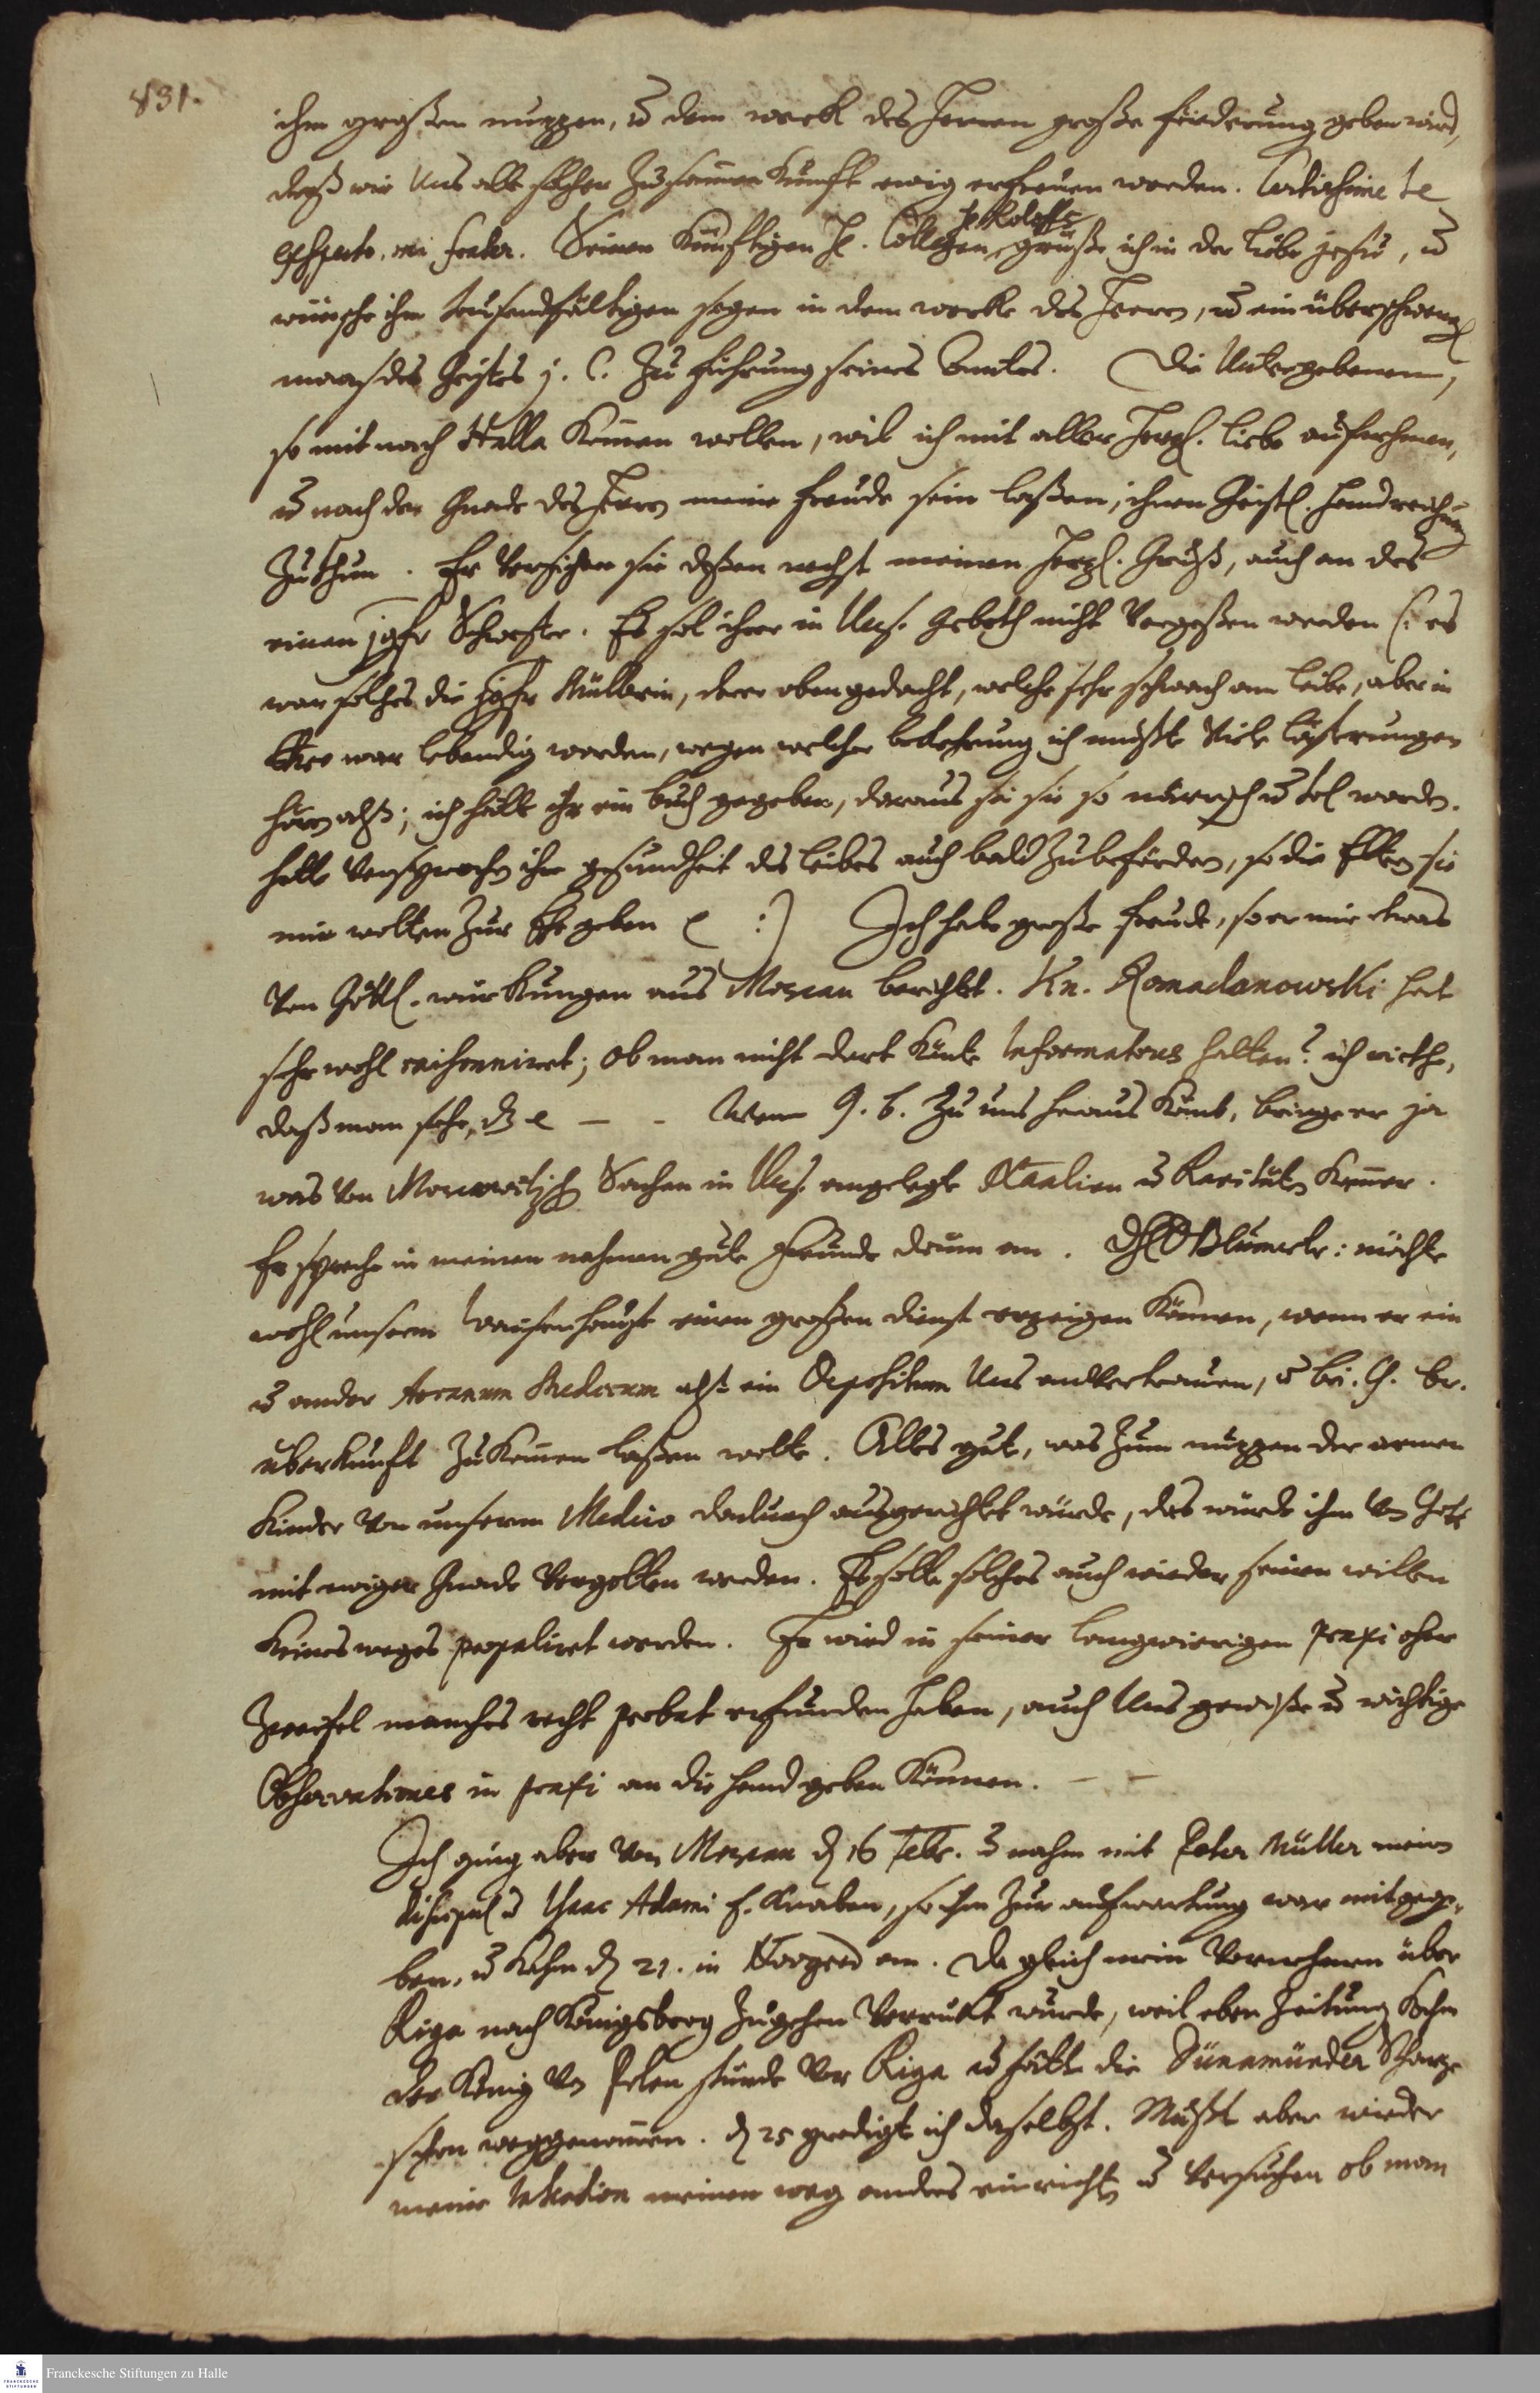 831.
ihm großen nutzen, u dem werck des Herren große förderung geben wird,
daß wir Uns alle solcher Zusammen Kunfft ewig erfreuen werden. Certissime te
exspecto, mi frater. Seinen Künfftigen H. Collegen, grüße ich in der Liebe Jesu, u
H. Roloffs
wünsche ihm tausendfältigen segen in dem wercke des Herrn, u ein überschwengl
maas des Geistes J. C. Zu führung seines Amtes. Die Untergebenen,
so mit nach Halla Kommen wollen, wil ich mit aller Hertzl. Liebe aufnehmen,
u nach der Gnade des Herrn meine freude sein laßen, ihnen Geistl. handreichung
Zuthun. Er versichere sie deßen nechst meinen Hertzl. Gruß, auch an des
einen Jgfr Schwester. Es sol ihrer in Uns. Gebeth nicht Vergeßen werden (: es
war solches die Jgfr Müllerin, derer oben gedacht, welche sehr schwach am leibe, aber in
war lebendig worden, wegen welcher bekehrung ich mußte Viele lästerungen
hören als; ich hätte ihr ein buch gegeben, daraus sei sie so närrisch u tol worden.
hatte versprochen ihr gesundheit des leibes auch bald Zubefördern, so die Eltern sie
mir wolten Zur Ehe geben :) Ich habe große freude, so er mir etwas
Von Göttl. würckungen aus Moscau berichtet. Kn. Romadanowski hat
sehr wohl raisonniret; ob man nicht dort Könte Informatores halten? ich riethe,
daß man sehe, dz e — - Wenn G. b. Zu uns heraus Komt, bringe er ja
was von Moscowitisch Sachen in Uns. angelegte Naturalien u Raritäten Kammer.
Er spreche in meinem nahmen gute freunde drum an. H D Blumentr: möchte
wohl unserm Waisenhause einen großen dienst erzeigen Können, wenn er ein
u ander Arcanum Medicum alß ein Depositum Uns anvertrauen, u bei G. br.
überkunfft ZuKommen laßen wolte. Alles gut, was Zum nutzen der armen
Kinder von unserm Medico dadurch ausgerichtet würde, das würde ihm von Gott
mit ewiger Gnade Vergolten werden. Es solte solches auch wieder seinen willen
Keines weges propaliret werden. Er wird in seiner langwierigen praxi ohne
Zweifel manches recht probat erfunden haben, auch Uns gewisse u wichtige
Observationes in praxi an die hand geben Können. — —
Ich ging aber von Moscau d 16 Febr. u nahm mit Peter Müller meinen
discipul u Isaac Adami f. Knaben, so ihm Zur aufwartung war mitgege-
ben, u Kahm d 21. in Novgrod an. Da gleich mein Vornehmen über
Riga nach Königsberg Zugehen Verruckt wurde, weil eben Zeitung Kahm
der König von Polen stünde vor Riga u hätte die Dünamünder Schantze
schon weggenommen. d 25 predigt ich daselbst. Mußte aber wieder
meine Intention meinen weg anders einrichten u versuchen ob man
Franckesche Stiftungen zu Halle